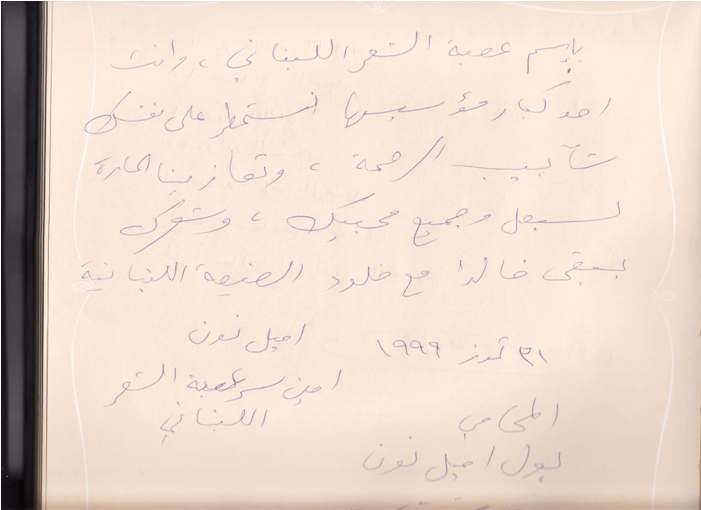 بإسم عصبة الشعر اللبناني، وانت
احد كبار مؤسسيها استمطر على نفسك
شآبيب الرحمة، وتعازينا الحارة
لسبعل وجميع محبيك، وشعرك
سيبقى خالدا مع خلود الضيعة اللبنانية
اميل نون
٣١ تموز ١٩٩٩
امين سر عصبة الشعر
اللبناني
المحامي
بول اميل نون